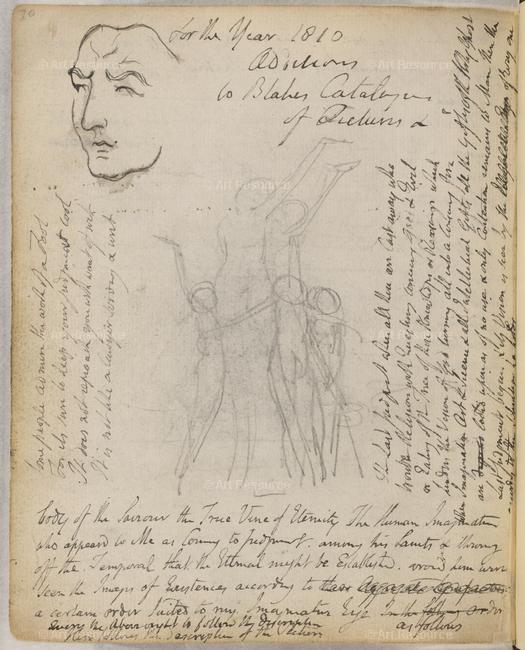 70
For the Year 1810
Additions
to Blakes Catalogue
of Pictures &
The Last Judgment when all those are Cast away who
trouble Religion with Questions concerning Good & Evil
or Eating of the Tree of those Knowledges or Reasonings which
hinder the Vision of God turning all into a Consuming Fire
When Imagination Art & Science & all Intellectual Gifts all the Gifts of the Holy Ghost
are lookd upon as of no use & only Contention remains to Man then the
Last Judgment begins & its Vision is seen by the of Every one
according to the situation he holds
Some people admire the work of a Fool
For its sure to keep your judgment cool
It does not reproach you with want of wit
It is not like a lawyer serving a writ
body of the Saviour the True Vine of Eternity The Human Imagination
who appeard to Me as Coming to Judgment. among his Saints & throwing
off the Temporal that the Eternal might be Establishd. around him were
seen the Images of Existences according to
a certain order suited to my Imaginative Eye In the order
as follows
the Above ought to follow the Description
Here follows the Description of the Picture
© Art Resource